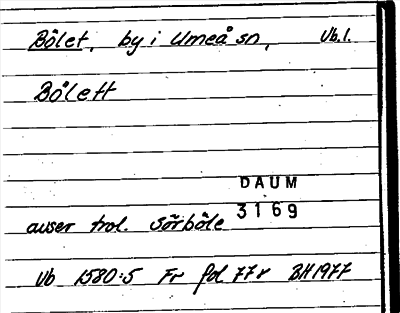 Bölet, by i Umeå sn, Vb.l.
Bölett
DAUM
3169
avser trol. Sörböle
Vb 1580:5 Fr fol 77r BH1977